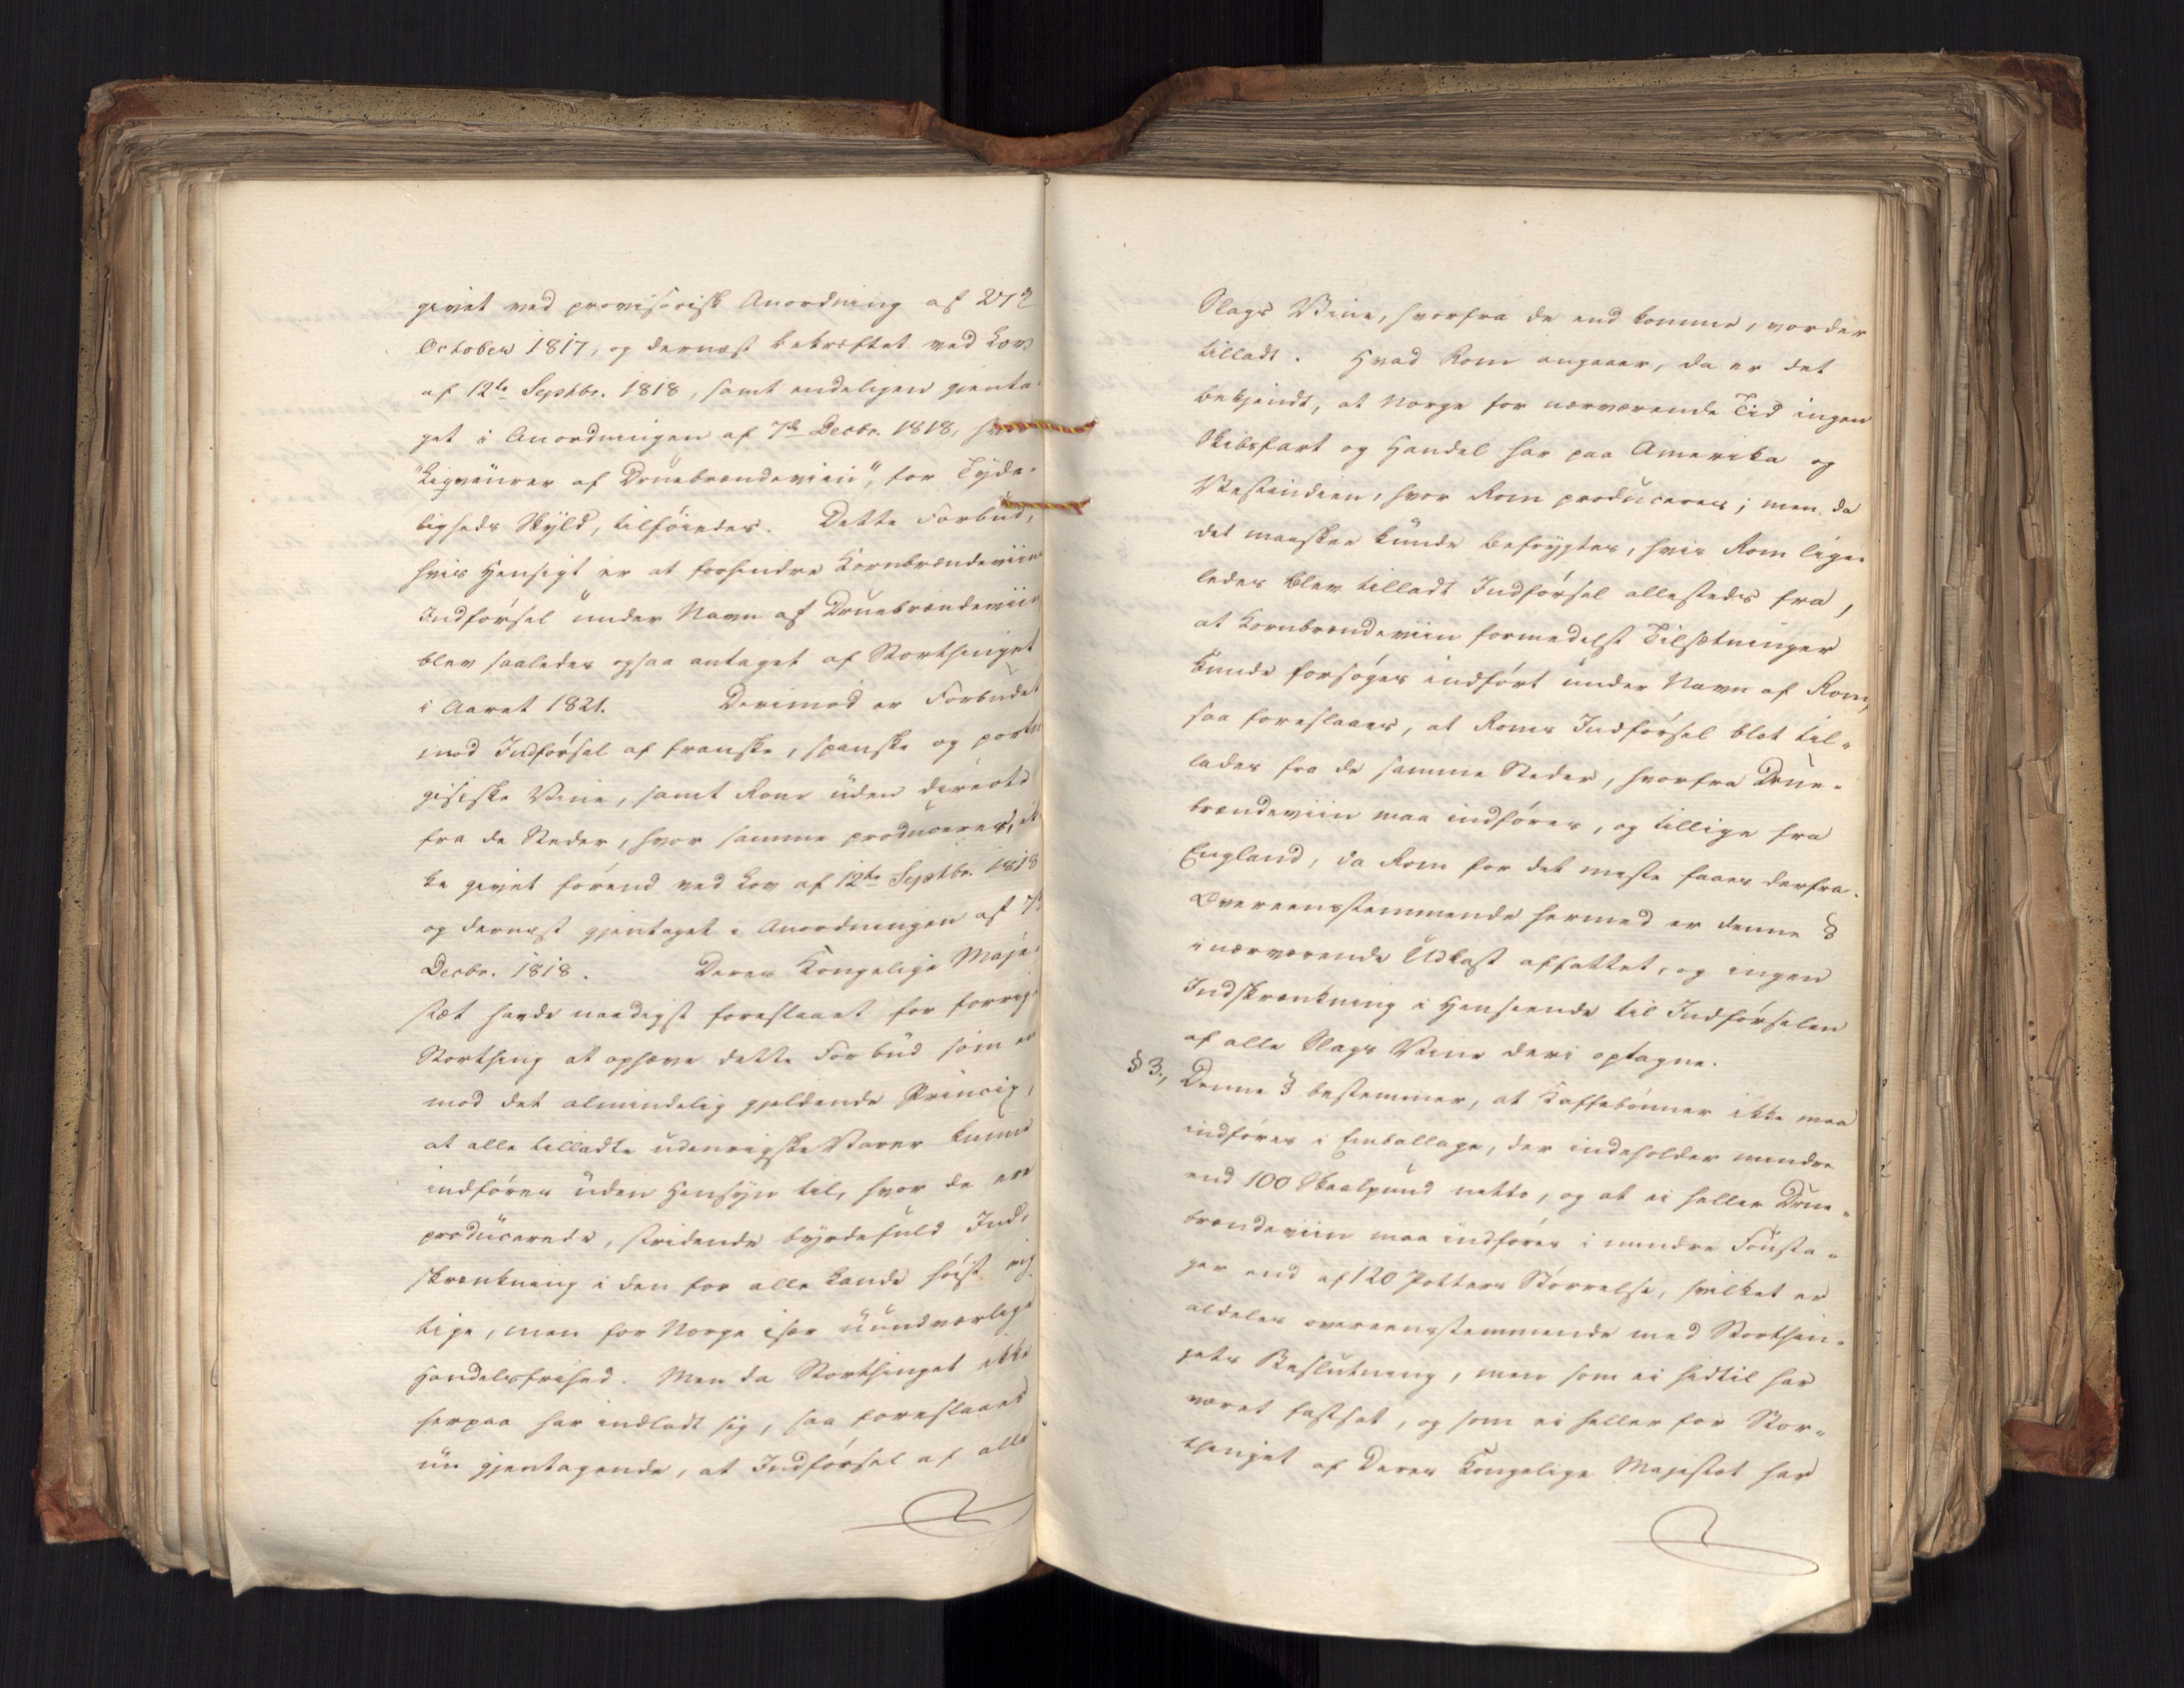 givet ved provisorisk Anordning af 27d
October 1817, og dernæst bekræftet ved Lov
af 12te Septbr. 1818, samt endeligen gienta-
get i Anordningen af 7de Decbr. 1818, hvor
"Liqveurer af Druebrændeviin", for Tyde-
ligheds Skyld, tilföiedes. Dette Forbud,
hvis Hensigt er at forhindre Kornbrændeviins
Indförsel under Navn af Druebrændeviin
blev saaledes ogsaa antaget af Storthinget
i Aaret 1821. Derimod er Forbudet
mod Indförsel af franske, spanske og portu
gisiske Vine, samt Rom uden directe
fra de Steder, hvor samme produceres, ik-
ke givet förend ved Lov af 12te Septbr. 1818
og dernæst gjentaget i Anordningen af 7d
Decbr. 1818. Deres Kongelige Maje-
stæt havde naadigst foreslaaet for forrige
Storthing at ophæve dette Forbud som en
mod det almindelig gjeldende Princip,
at alle tilladte udenrigske Varer kunne
indföres uden Hensyn til, hvor de ere
producerede, stridende byrdefuld Ind-
skrænkning i den for alle Lande höist vig
tige, men for Norge især uundværlige
Handelsfrihed. Men da Storthinget ikke
herpaa har indladt sig, saa foreslaaes
nu gjentagende, at Indförsel af alle
Slags Viine, hvorfra de end komme, vorder
tilladt. Hvad Rom angaaer, da er det
bekjendt, at Norge for nærværende Tid ingen
Skibsfart og Handel har paa Amerika og
Vestindien, hvor Rom produceres; men da
det maaskee kunde befrygtes, hvis Rom lige-
ledes blev tilladt Indförsel allestedes fra,
at Kornbrændeviin formedelst Tilsætninger
kunde forsöges indfört under Navn af Rom,
saa foreslaaes, at Roms Indförsel blot til-
lades fra de samme Steder, hvorfra Drue-
brændeviin maa indföres, og tillige fra
England, da Rom for det meste faaes derfra.
Overeensstemmende hermed er denne §
i nærværende Udkast affattet, og ingen
Indskrænkning i Henseende til Indförselen
af alle Slags Vine deri optagne.
§ 3., Denne § bestemmer, at Kaffebönner ikke maa
indföres i Emballage, der indeholder mindre
end 100 Skaalpund netto, og at ei heller Drue-
brændeviin maa indföres i mindre Fousta-
ger end af 120 Potters Störrelse, hvilket er
aldeles overeensstemmende med Storthin-
gets Beslutning, men som ei hidtil har
været fastsat, og som ei heller for Stor-
thinget af Deres Kongelige Majestæt har